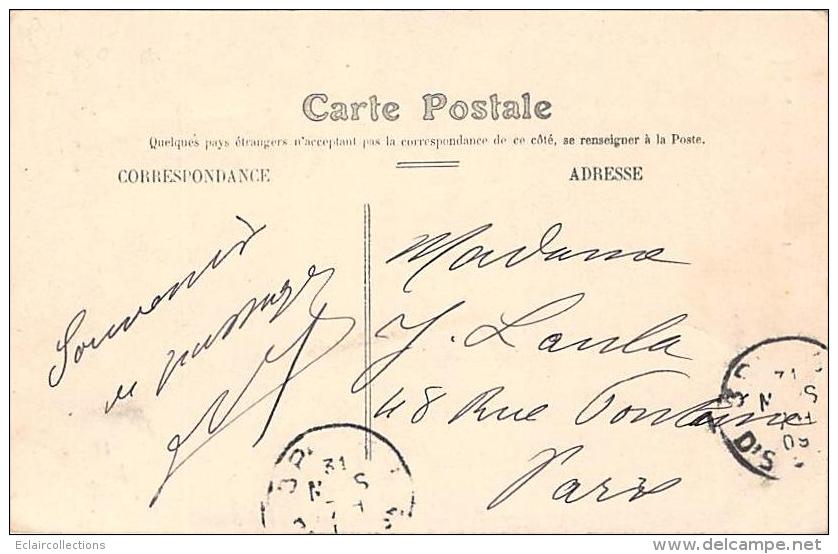 Carte Postale
Quelques pays étrangers n'acceptant pas la correspondance de ce côté, se renseigner à la Poste.
CORRESPONDANCE
ADRESSE
Souvenir
de passage
Madame
J. Laula
48 Rue Fontaine
Paris
Eclaircollections
www.delcampe.net